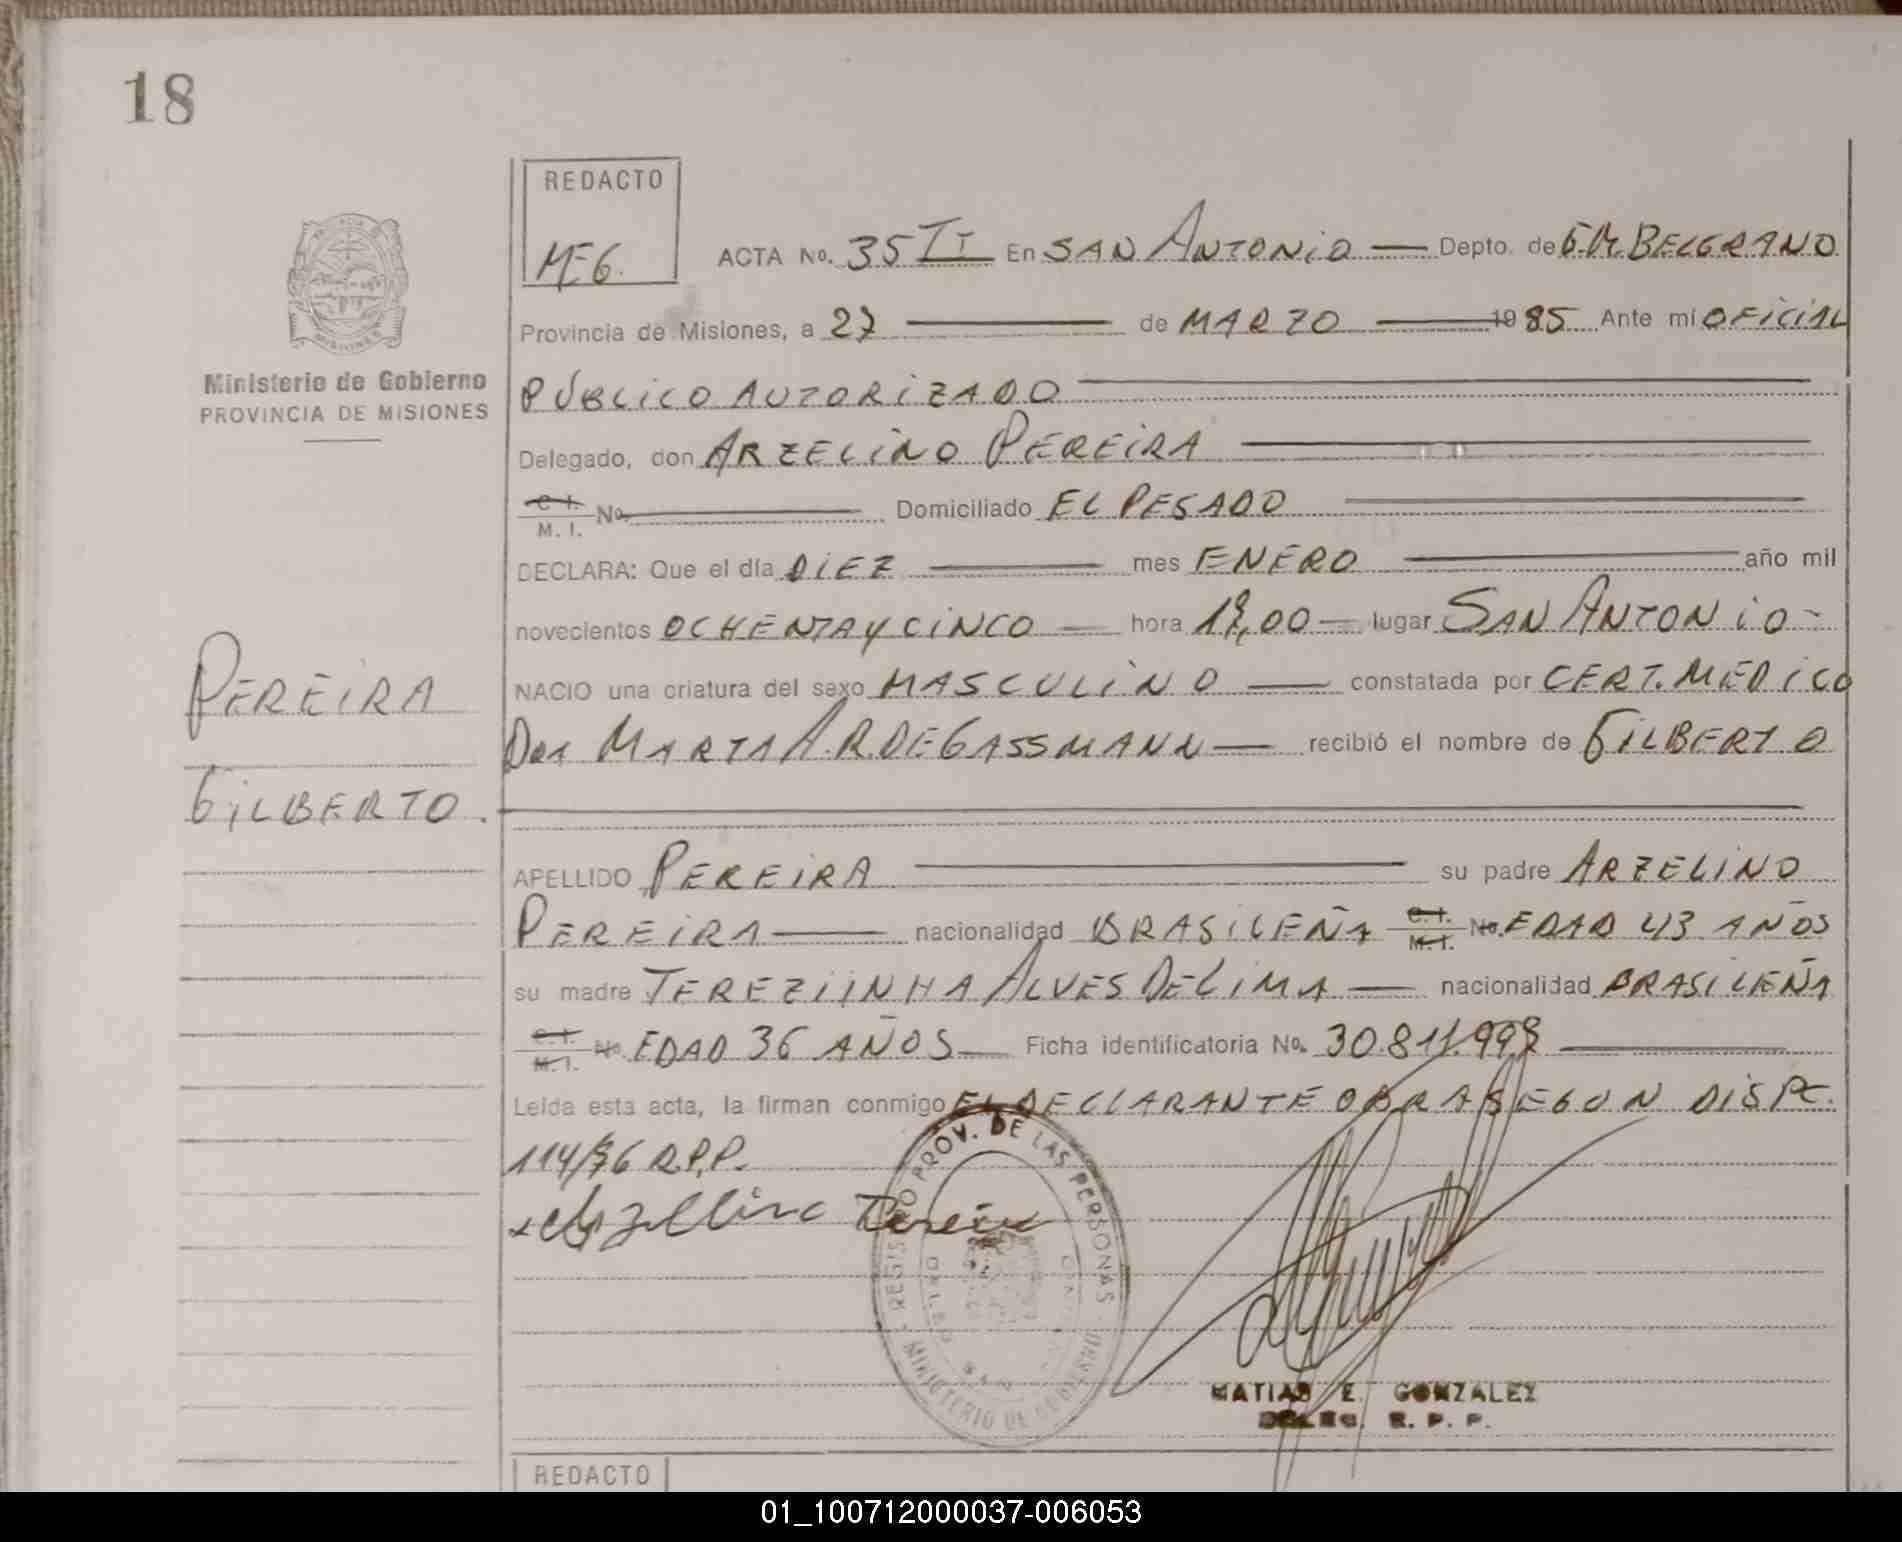 18
REDACTO
MEG.
ACTA No. 35 TI En SAN ANTONIO — Depto. de G.M. BELGRANO
Provincia de Misiones, a 27 — de MARZO — 1985 Ante mí OFICIAL
Ministerio de Gobierno
PROVINCIA DE MISIONES
PÚBLICO AUTORIZADO
Delegado, don ARZELINO PEREIRA
C. I.
M. I. No. — Domiciliado EL PESADO
DECLARA: Que el día DIEZ — mes ENERO — año mil
novecientos OCHENTA Y CINCO — hora 19,00 — lugar SAN ANTONIO -
NACIO una criatura del sexo MASCULINO — constatada por CERT. MEDICO
DRA MARTA A. R. DE GASSMANN — recibió el nombre de GILBERTO
PEREIRA
GILBERTO.
APELLIDO PEREIRA — su padre ARZELINO
PEREIRA — nacionalidad BRASILEÑA C. I. M. I. No. EDAD 43 AÑOS
su madre TEREZIINHA ALVES DE LIMA — nacionalidad BRASILEÑA
C. I.
M. I. No. EDAD 36 AÑOS — Ficha identificatoria No. 30.811.998 —
Leída esta acta, la firman conmigo EL DECLARANTE OBRA SEGUN DISPC.
114/76 R.P.P.
Arzellino Pereira
REGISTRO PROV. DE LAS PERSONAS
MINISTERIO DE GOBIERNO
MATIAS E. GONZALEZ
DELEG. R. P. P.
REDACTO
01_100712000037-006053